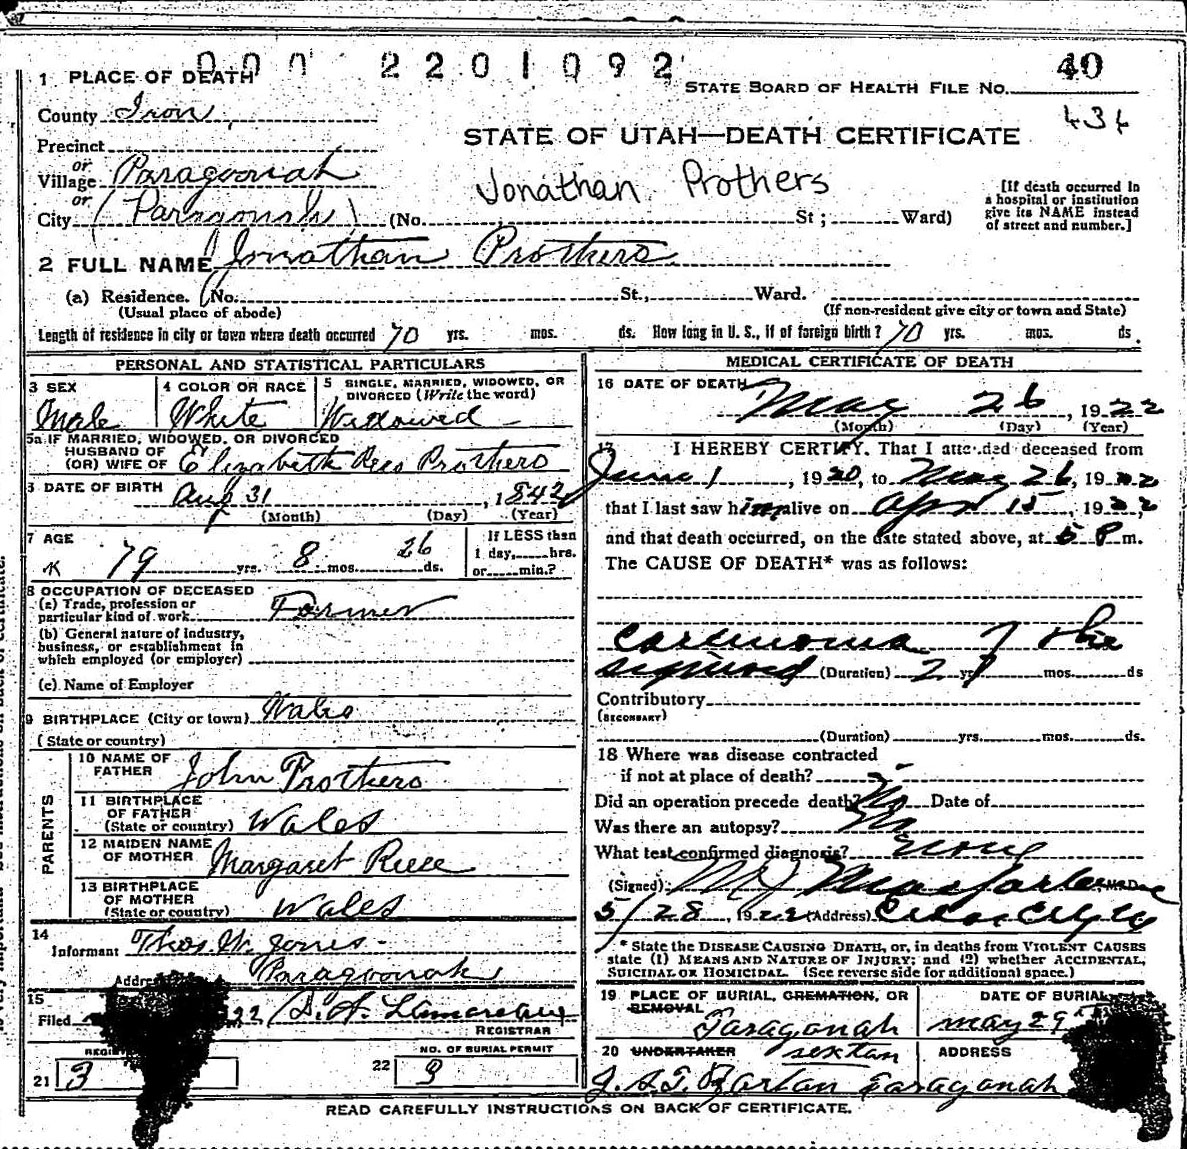 000 2201092
40
STATE BOARD OF HEALTH FILE No.
434
1 PLACE OF DEATH
County Iron
STATE OF UTAH—DEATH CERTIFICATE
Precinct
or
Village Paragoonah
or
City (Paragonah) (No. St; Ward)
Jonathan Prothers
[If death occurred in
a hospital or institution
give its NAME instead
of street and number.]
2 FULL NAME Jonathan Prothero
(a) Residence. No. St., Ward.
(Usual place of abode) (If non-resident give city or town and State)
Length of residence in city or town where death occurred 70 yrs. mos. ds. How long in U. S., if of foreign birth? 70 yrs. mos. ds.
PERSONAL AND STATISTICAL PARTICULARS
3 SEX
Male
4 COLOR OR RACE
White
5 SINGLE, MARRIED, WIDOWED, OR
DIVORCED (Write the word)
Widowed
5a IF MARRIED, WIDOWED, OR DIVORCED
HUSBAND OF
(OR) WIFE OF Elizabeth Rees Prothero
6 DATE OF BIRTH Aug 31, 1842
(Month) (Day) (Year)
7 AGE
79 yrs. 8 mos. 26 ds.
If LESS than
1 day, hrs.
or min.?
8 OCCUPATION OF DECEASED
(a) Trade, profession or
particular kind of work Farmer
(b) General nature of industry,
business, or establishment in
which employed (or employer)
(c) Name of Employer
9 BIRTHPLACE (City or town) Wales
(State or country)
PARENTS
10 NAME OF
FATHER John Prothero
11 BIRTHPLACE
OF FATHER
(State or country) Wales
12 MAIDEN NAME
OF MOTHER Margaret Reece
13 BIRTHPLACE
OF MOTHER
(State or country) Wales
14
Informant Thos. W. Jones
Address Paragoonah
15
Filed 22
REGISTRAR
21 3
NO. OF BURIAL PERMIT
22 3
MEDICAL CERTIFICATE OF DEATH
16 DATE OF DEATH
May 26, 1922
(Month) (Day) (Year)
17 I HEREBY CERTIFY, That I attended deceased from
June 1, 1920, to May 26, 1922
that I last saw him alive on Apr 15, 1922,
and that death occurred, on the date stated above, at 5 P m.
The CAUSE OF DEATH* was as follows:
Carcinoma of the
sigmoid (Duration) 2 yrs mos. ds
Contributory
(SECONDARY)
(Duration) yrs. mos. ds.
18 Where was disease contracted
if not at place of death? ?
Did an operation precede death? No Date of
Was there an autopsy? No
What test confirmed diagnosis? none
(Signed) M J Macfarlane M.D.
5/28, 1922 (Address) Cedar City
* State the DISEASE CAUSING DEATH, or, in deaths from VIOLENT CAUSES
state (1) MEANS AND NATURE OF INJURY; and (2) whether ACCIDENTAL,
SUICIDAL OR HOMICIDAL. (See reverse side for additional space.)
19 PLACE OF BURIAL, CREMATION, OR
REMOVAL
Paragonah
DATE OF BURIAL
May 29
20 UNDERTAKER sextan
ADDRESS
Paragonah
READ CAREFULLY INSTRUCTIONS ON BACK OF CERTIFICATE.